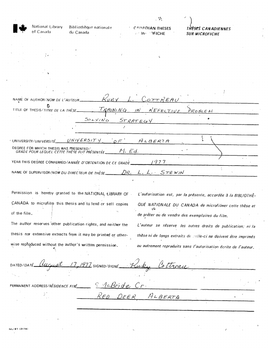 National Library of Canada
Bibliothèque nationale du Canada
CANADIAN THESES
THÈSES CANADIENNES
SUR MICROFICHE
NAME OF AUTHOR/NOM DE L'AUTEUR
RUDY L. COTTREAU
TITLE OF THESIS/TITRE DE LA THÈSE
TRAINING IN PROBLEM
SOLVING STRATEGY
UNIVERSITY/UNIVERSITÉ
UNIVERSITY OF ALBERTA
DEGREE FOR WHICH THESIS WAS PRESENTED/
GRADE POUR LEQUEL CETTE THÈSE FUT PRÉSENTÉE
M. Ed.
YEAR THIS DEGREE CONFERRED/ANNÉE D'OBTENTION DE CE GRADE
1977
NAME OF SUPERVISOR/NOM DU DIRECTEUR DE THÈSE
DR. L. L. STEWIN
Permission is hereby granted to the NATIONAL LIBRARY OF
CANADA to microfilm this thesis and to lend or sell copies
of the film.
The author reserves other publication rights, and neither the
thesis nor extensive extracts from it may be printed or other-
wise reproduced without the author's written permission.
L'autorisation est, par la présente, accordée à la BIBLIOTHÈ-
QUE NATIONALE DU CANADA de microfilmer cette thèse et
de prêter ou de vendre des exemplaires du film.
L'auteur se réserve les autres droits de publication; ni la
thèse ni de longs extraits de celle-ci ne doivent être imprimés
ou autrement reproduits sans l'autorisation écrite de l'auteur.
DATED/DATÉ August 17, 1977 SIGNED/SIGNÉ Rudy Cottreau
PERMANENT ADDRESS/RÉSIDENCE FIXE
McBride Cr.
RED DEER ALBERTA